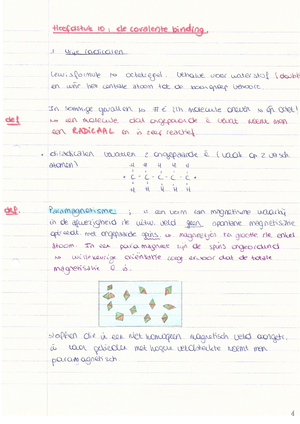 Hoofdstuk 10: de covalente binding.
1. Vrije radicalen
Lewisformule → octetregel. Behalve voor waterstof (doublet)
en voor het centrale atoom tot de
In sommige gevallen is # é i/h molecule oneven →
def → een molecule dat ongepaarde é bevat noemt men
een RADICAAL en is zeer reactief.
• diradicalen bevatten 2 ongepaarde é (vaak op 2 versch.
atomen)
H H H H H
• C - C - C - C - C •
H H H H H
def. Paramagnetisme: is een vorm van magnetisme waarbij
in de afwezigheid v/e uitw. veld geen spontane magnetisatie
optreedt. met ongepaarde spins → magneetjes ter grootte v/e enkel
atoom. In een paramagneet zijn de spins ongeordend
→ willekeurige oriëntatie zorgt ervoor dat de totale
magnetisatie 0 is.
stoffen die in een niet homogeen magnetisch veld aangetr.
naar gebieden met hogere veldsterkte noemt men
paramagnetisch.
4